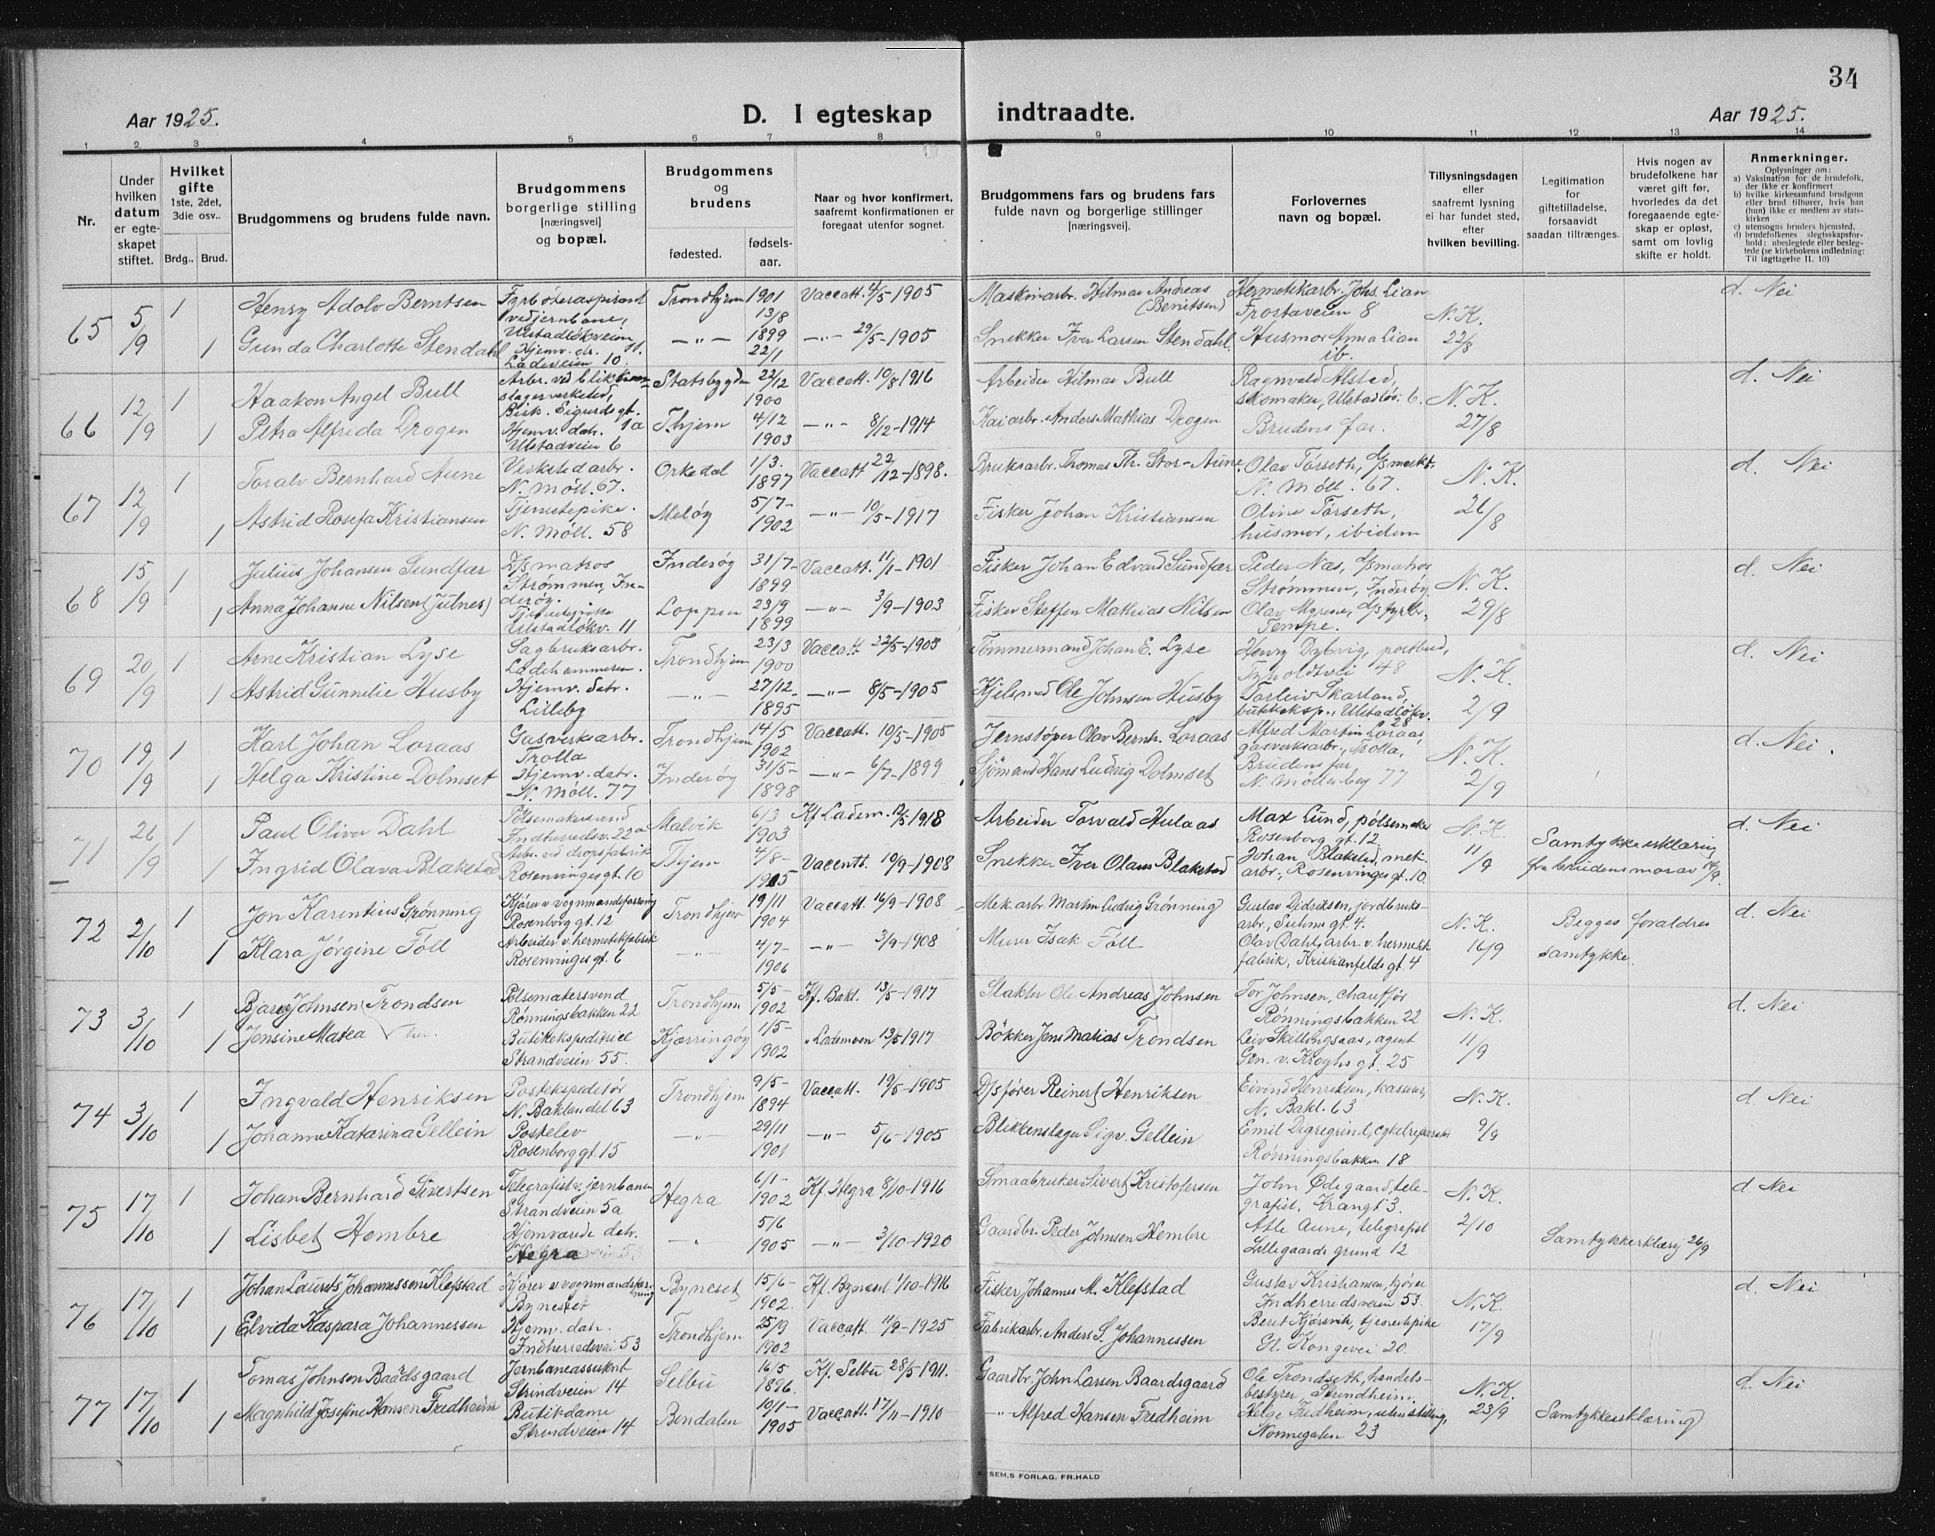 34
Aar 1925.
D. I egteskap indtraadte.
Aar 1925.
1 2 3 4 5 6 7 8 9 10 11 12 13 14
Nr.
Under hvilken datum er egteskapet stiftet.
Hvilket gifte 1ste, 2det, 3die osv..
Brdg.. Brud.
Brudgommens og brudens fulde navn.
Brudgommens borgerlige stilling [næringsvei] og bopæl.
Brudgommens og brudens
fødested.
fødsels-aar.
Naar og hvor konfirmert, saafremt konfirmationen er foregaat utenfor sognet.
Brudgommens fars og brudens fars fulde navn og borgerlige stillinger [næringsvei].
Forlovernes navn og bopæl.
Tillysningsdagen eller saafremt lysning ei har fundet sted, efter hvilken bevilling.
Legitimation for giftetilladelse, forsaavidt saadan tiltrænges.
Hvis nogen av brudefolkene har været gift før, hvorledes da det foregaaende egteskap er opløst, samt om lovlig skifte er holdt.
Anmerkninger.
Oplysninger om:
a) Vaksination for de brudefolk, der ikke er konfirmert
b) hvilke kirkesamfund brudgom eller brud tilhører, hvis han (hun) ikke er medlem av statskirken
c) utensogns bruders hjemsted.
d) brudefolkenes slegtsskapsforhold: ubeslegtede eller beslegtede (se kirkebokens indledning: Til iagttagelse II. 10)
65 5/9 1 Henry Adolv Berntsen Fyrbøteraspirant ved jernbane, Ulstadløkveien Trondhjem 1901 13/8 Vaccatt. 4/5-1905 Maskinarb. Hilmar Andreas (Berntsen) Hermetikarb. Johs. Lian Frostaveien 8 N.K. 22/8 d. Nei
1 Gunda Charlotte Stendahl Hjemv. dr. Ladeveien 10. -"- 1899 22/1 -"- 29/5-1905 Snekker Iver Larsen Stendahl Husmor Anna Lian ib.
66 12/9 1 Haakon Angel Bull Arbr. ved blikkenslagerverksted, Bisk. Sigurds gt. 1a Statsbygden 22/12 1900 Vaccatt. 10/8 1916 Arbeider Hilmar Bull Ragnvald Alstad, skomaker, Ulstadløv. 6. N.K. 27/8 d. Nei
1 Petra Alfrida Drogen Hjemv. datr. Ulstadveien 6 T.hjem 4/12 1903 -"- 8/12-1914 Kaiarbr. Anders Mathias Drogen Brudens far.
67 12/9 1 Toralv Bernhard Aune Verkstedarbr. N. Møll. 67. Orkedal 1/3. 1897 Vaccatt 22/12-1898. Bruksarbr. Thomas Th. Stor-Aune Olav Tørseth, N. Møll. 67. N.K. 26/8 d. Nei
1 Astrid Rosefa Kristiansen Tjenestepike. N. Møll. 58 Meløy 5/7- 1902 -"- 10/5-1917 Fisker Johan Kristiansen Oline Tørseth, husmor, ibidem
68 15/9 1 Julius Johansen Sundfær D/s matros Strømmen, Inderøy. Inderøy 31/7- 1899 Vaccatt. 11/1-1901 Fisker Johan Edvard Sundfær Peder Næs, d/s matros Strømmen, Inderøy. N.K. 29/8 d. Nei
1 Anna Johanne Nilsen (Julnes) Tjenestepike Ulstadløkv. 11 Loppen 23/9 1899 -"- 3/9-1903 Fisker Steffen Mathias Nilsen Olav Myrene, d/s fyrbr. Tempe.
69 20/9 1 Arne Kristian Lyse Sagbruksarbr. Ladehammeren. Trondhjem 23/3 1900 Vaccatt 22/5-1905 Tømmermand Johan E. Lyse Henry Dybvig, postbud, Tyholdtvei 48 N.K. 2/9 d. Nei
1 Astrid Gunnelie Husby Hjemv. datr. Lilleby -"- 27/12- 1895 -"- 8/5-1905 Kjelsmed Ole Johnsen Husby Torleiv Skarland, butikeksp., Ulstadløkv. 28
70 19/9 1 Karl Johan Loraas Gasverksarbr. Trolla Trondhjem 14/5 1902 Vaccatt. 10/5-1905 Jernstøper Olav Bernh. Loraas Alfred Martin Loraas, gasverksarbr., Trolla, N.K. 2/9 d. Nei.
1 Helga Kristine Dolmset Hjemv. datr. N. Møll. 77 Inderøy 31/5- 1898 -"- 6/7-1899 Sjømand Hans Ludvig Dolmset Brudens far, N. Møllenberg 77
71 26/9 1 Paul Oliver Dahl Pølsemakersvend Indherredsv. 22a Malvik 6/3 1903 Kf. Ladem. 12/5-1918 Arbeider Torvald Hulaas Max Lund, pølsemaker Rosenborg gt. 12. N.K. 11/9 Samtykkeerklæring fra brudens mor av 14/9. d. Nei
1 Ingrid Olava Blakstad Arbr. ved dropsfabrik Rosenvinges gt. 10 T.hjem 4/8- 1905 Vaccatt. 19/9-1908 Snekker Iver Olaus Blakstad Johan Blakstad, met. arbr., Rosenvinges gt. 10.
72 2/10 1 Jon Karentius Grønning Kjører v vognmandsforretning Rosenborg gt. 12 Trondhjem 19/11 1904 Vaccatt. 16/9-1908 Mek. arb. Martin Ludvig Grønning Gustav Didriksen, jordbruksarbr., Suhms gt. 4. N.K. 14/9 Begges foraldres samtykke. d. Nei
1 Klara Jørgine Föll Arbeider v. hermetikfabrik Rosenvinges gt. 6 -"- 4/7- 1906 -"- 3/9-1908 Murer Isak Föll Olav Dahl, arbr. v. hermetikfabrik, Kristianfelds gt. 4
73 3/10 1 Bjarne Johnsen Pølsemakersvend Rønningsbakken 22 Trondhjem 5/5- 1902 Kf. Bakl. 13/5-1917 Slakter Ole Andreas Johnsen Tor Johnsen, chauffør Rønningsbakken 22 N.K. 11/9 d. Nei
1 Jensine Matea Trondsen Butikekspeditrice Strandveien 55. Kjærringøy 1/5- 1902 " Lademoen 13/5-1917 Bøkker Jens Matias Trondsen Leiv Skillingsaas, agent Gen. v. Kroghs gt. 25
74 3/10 1 Ingvald Henriksen Postekspeditør N. Baklandet 63 Trondhjem 9/5- 1894 Vaccatt. 19/5-1905 D/s fører Reinert Henriksen Eivind Henriksen, kasserer, N. Bakl. 63 N.K. 9/9 d. Nei
1 Johanne Katarina Gellein Postelev Rosenborg gt. 15 -"- 29/11 1901 -"- 5/6-1905 Blikkenslager Sigv. Gellein Emil Digregrind, cykelreparatør Rønningsbakken 18
75 17/10 1 Johan Bernhard Sivertsen Telegrafist v. jernbanen Strandveien 5a Hegra 6/1- 1902 Kf. Hegra 8/10-1916 Smaabruker Sivert Kristofersen John Ødegaard, telegrafist, Krangt 3. N.K. 2/10 d. Nei
1 Lisbet Hembre Hjemværende datr. Hegra -"- 5/6 1905 -"- 3/10-1920 Gaardbr. Peder Johnsen Hembre Atle Aune, telegrafist Lillegaards grund 12 Samtykkeerklærg 26/9
76 17/10 1 Johan Laurits Johannessen Klefstad Kjører v vognmandsforretning Bynesset Byneset 15/6- 1902. Kf. Byneset 1/10-1916 Fisker Johannes M. Klefstad Gustav Kristiansen, kjører Indherredsveien 53. N.K. 17/9 d. Nei
1 Elvida Kaspara Johannessen Hjemv. datr. Indherredsvei 53 Trondhjem 25/9 1902 Vaccatt. 11/9-1925 Fabrikarbr. Anders S. Johannessen Beret Kjørsvik, tjenestepike El. Kongevei 20.
77 17/10 1 Tomas Johnsen Baardsgaard Jernbaneassistent Strindveien 14 Selbu 16/5 1896. Kf. Selbu 28/5-1911. Gaardbr. John Larsen Baardsgaard Ole Trondseth, handelsbestyrer, Strindheim, N.K. 23/9 d. Nei
1 Magnhild Josefine Hansen Fredheim Butikdame Strindveien 14 Bindalen 10/1- 1905 Vaccatt. 17/11-1910 -"- Alfred Hansen Fredheim Helge Fredheim, uten stilling, Nonnegaten 23 Samtykkeerklæring
SEM.S FORLAG. FR.HALD